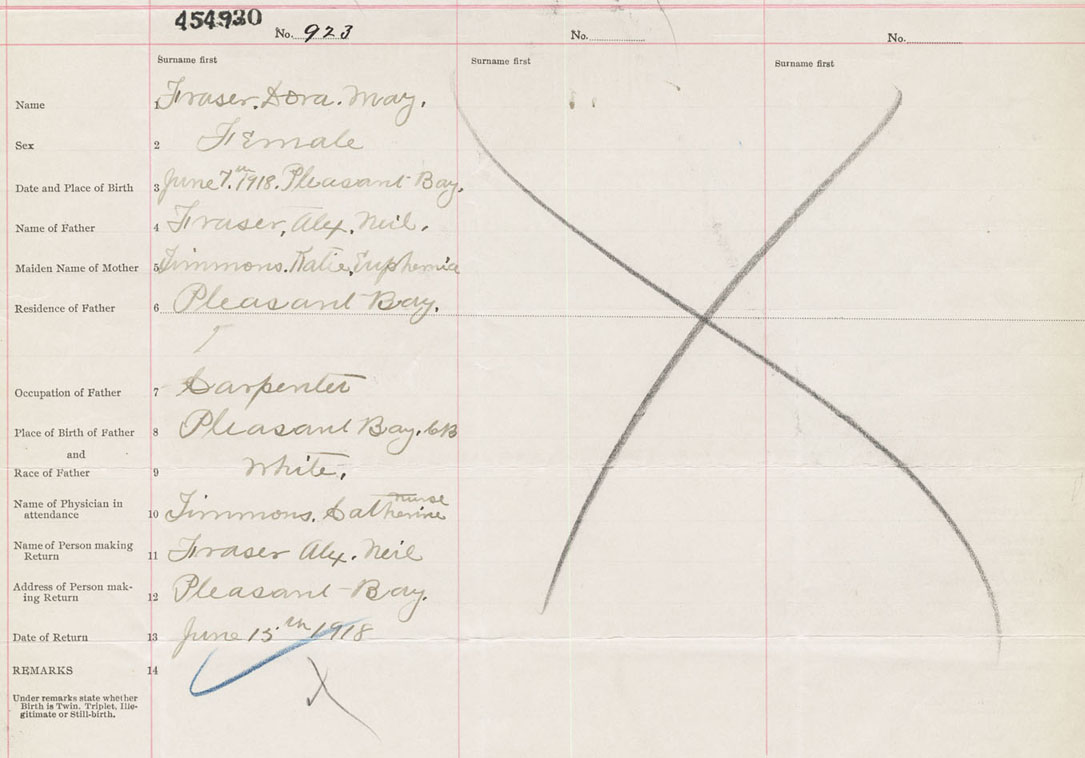 454930
No. 923
No.
No.
Surname first
Surname first
Surname first
Name 1 Fraser, Dora. May.
Sex 2 Female
Date and Place of Birth 3 June 7.th 1918. Pleasant Bay.
Name of Father 4 Fraser, Alex. Neil.
Maiden Name of Mother 5 Timmons. Katie, Euphemia
Residence of Father 6 Pleasant Bay.
Occupation of Father 7 Carpenter
Place of Birth of Father 8 Pleasant Bay. CB
and
Race of Father 9 White.
Name of Physician in nurse
attendance 10 Timmons. Catherine
Name of Person making
Return 11 Fraser Alex. Neil
Address of Person mak-
ing Return 12 Pleasant Bay.
Date of Return 13 June 15th 1918
REMARKS 14
Under remarks state whether
Birth is Twin, Triplet, Ille-
gitimate or Still-birth.